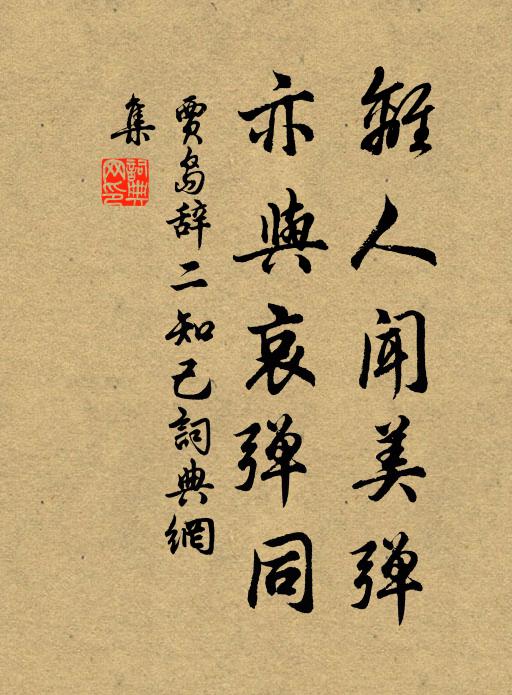 離人聞美弹
亦與哀弹同
賈島辞二知己詞典網
集
詞典
网印